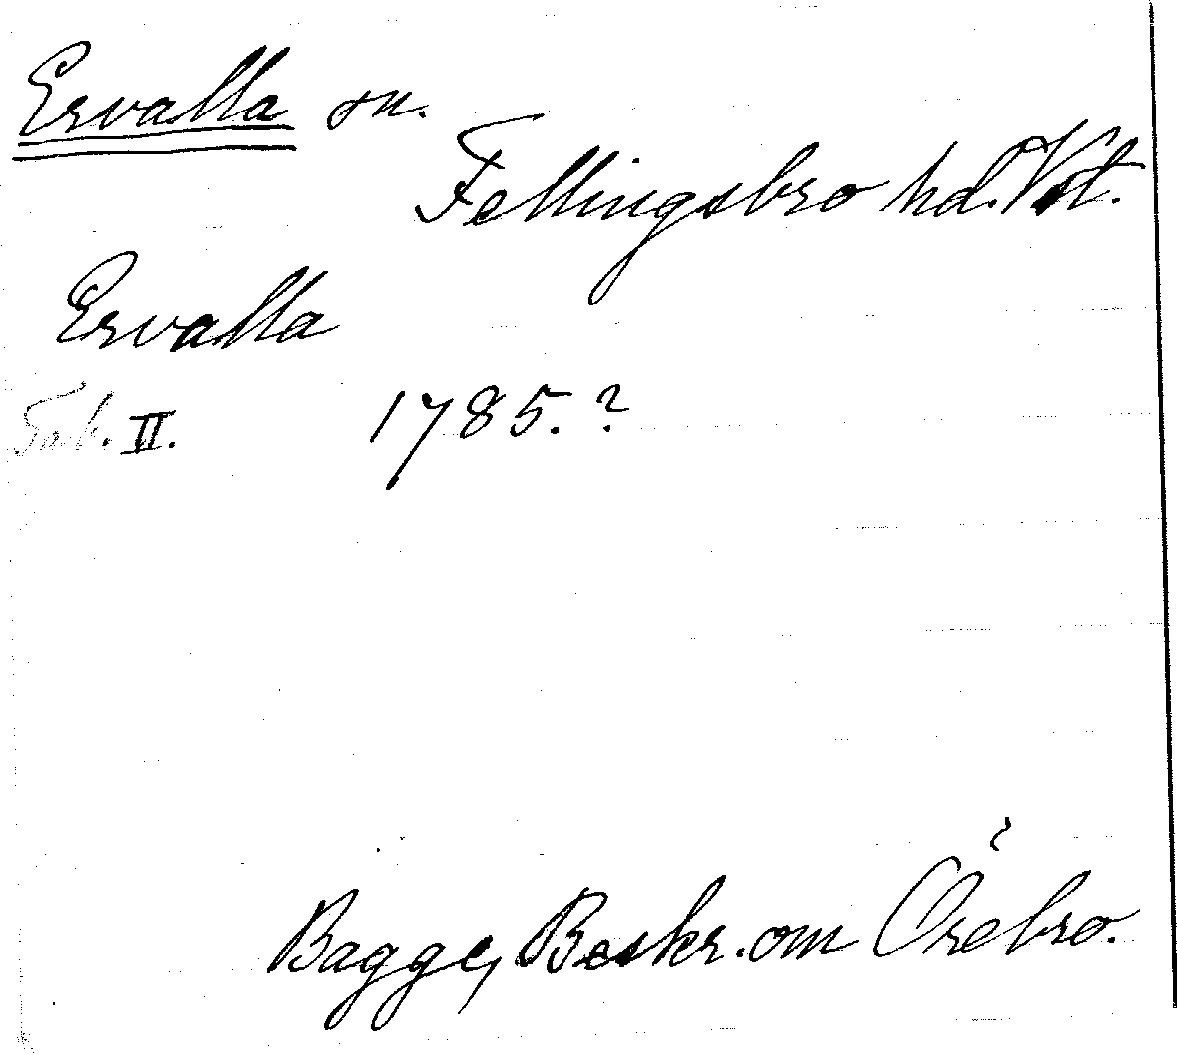 Ervalla sn.
Fellingsbro hd. Vst.
Ervalla
Tab. II. 1785.?
Bagge, Beskr. om Örebro.